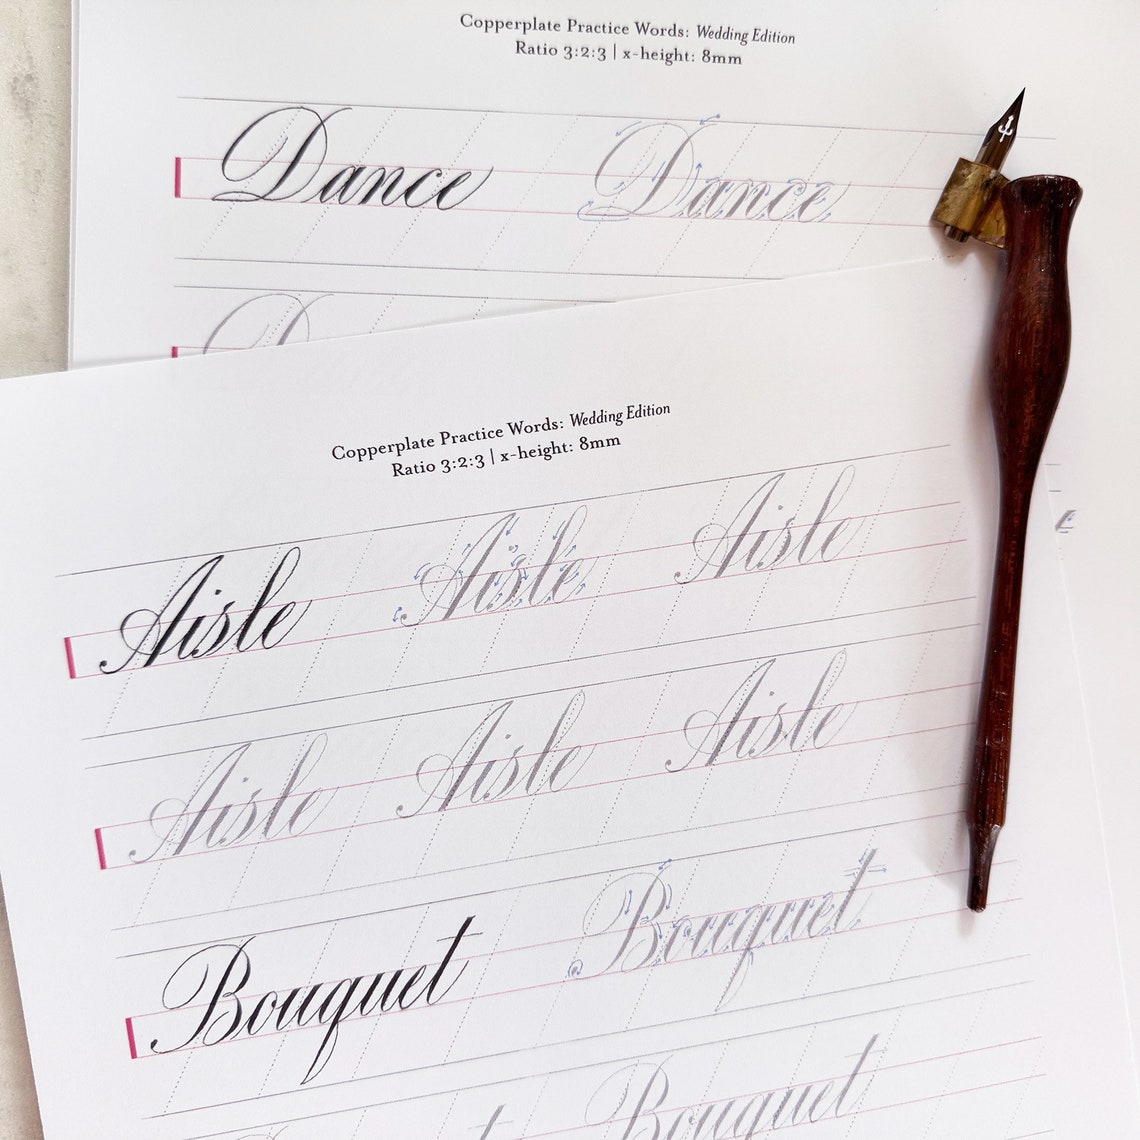 Copperplate Practice Words: Wedding Edition
Ratio 3:2:3 | x-height: 8mm
Dance Dance
D
Copperplate Practice Words: Wedding Edition
Ratio 3:2:3 | x-height: 8mm
Aisle Aisle Aisle
Aisle Aisle Aisle
Bouquet Bouquet
Bouquet